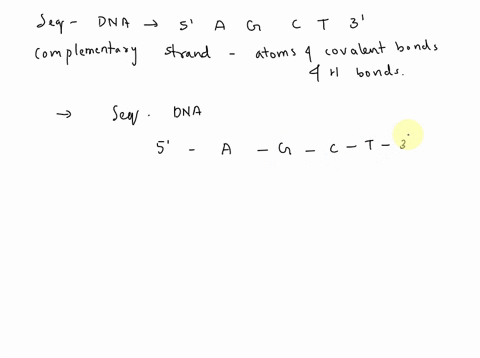 Seq - DNA → 5' A G C T 3'
complementary strand - atoms & covalent bonds
& H bonds.
→ Seq. DNA
5' - A - G - C - T - 3'